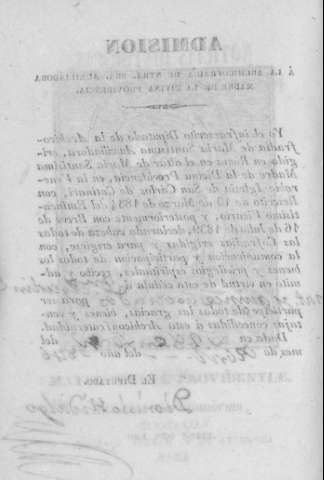 ADMISION
Á LA ARCHICOFRADIA DE NTRA. SRA. AUXILIADORA
MADRE DE LA DIVINA PROVIDENCIA.
Yo el infrascrito Diputado de la Archico-
fradia de Maria Santisima Auxiliadora, eri-
gida en Roma en el altar de Maria Santisima
Madre de la Divina Providencia, en la Parro-
quia Iglesia de San Carlos de Catinari, con
Rescrito de 19 de Marzo de 1834 del Eminen-
tisimo Vicario, y posteriormente con Breve de
16 de Julio de 1839, declarada cabeza de todas
las Cofradias erigidas y para erigirse, con
la comunicacion y participacion de todos los
bienes y privilegios espirituales, recibo y ad-
mito en virtud de esta cédula á
para ser
participe de todas las gracias, bienes y ven-
tajas concedidas á esta Archicofraternidad.
Dada en del
mes de Abril del año 1846
EL DIPUTADO,
Dionisio Hidalgo